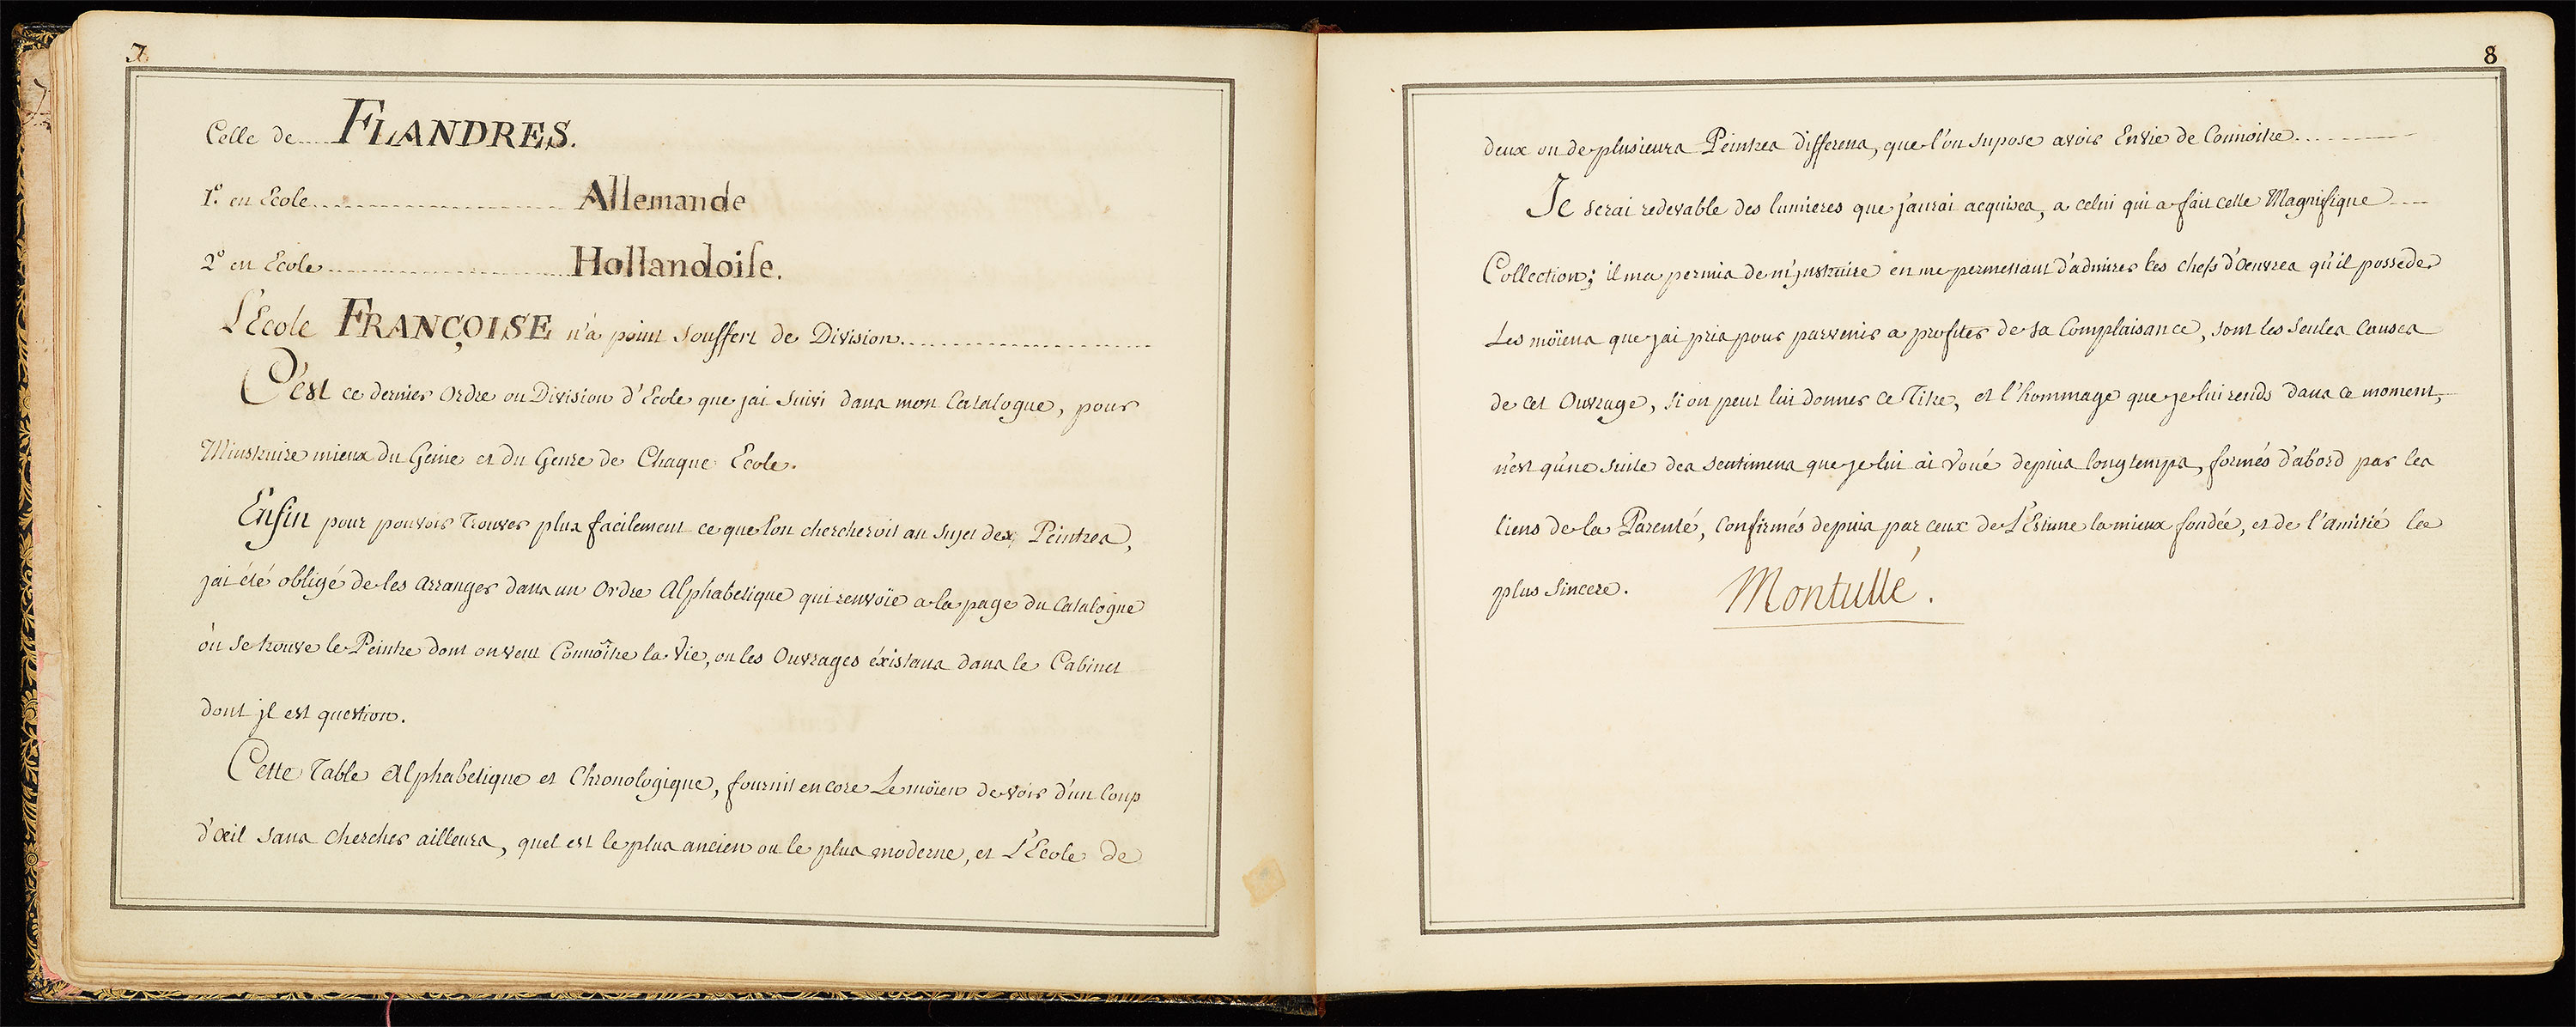 7.
Celle de .... FLANDRES.
1.º en Ecole ........................ Allemande
2.º en Ecole ........................ Hollandoise.
L'Ecole FRANÇOISE n'a point souffert de Division ........................
C'est ce dernier Ordre ou Division d'Ecole que j'ai suivi dans mon Catalogue, pour
M'instruire mieux du Genie et du Genre de Chaque Ecole.
Enfin pour pouvoir Trouver plus facilement ce que l'on chercheroit au Sujet des Peintres,
j'ai été obligé de les arranger dans un Ordre Alphabetique qui renvoïe a la page du Catalogue
où se trouve le Peintre dont on veut Connoître la Vie, ou les Ouvrages éxistans dans le Cabinet
dont jl est question.
Cette Table Alphabetique et Chronologique, fournit encore Le moïen de voir d'un Coup
d'œil sans chercher ailleurs, quel est le plus ancien ou le plus moderne, et L'Ecole de
8
deux ou de plusieurs Peintres differens, que l'on supose avoir Envie de Connoitre ............
Je serai redevable des lumieres que j'aurai acquises, a celui qui a fait cette Magnifique ....
Collection; il m'a permis de m'jnstruire en me permettant d'admirer les chefs d'Oeuvres qu'il possede
Les moïens que j'ai pris pour parvenir a profiter de sa Complaisance, sont les Seules Causes
de cet Ouvrage, si on peut lui donner ce Titre, et l'hommage que je lui rends dans ce moment,
n'est qu'une suite des sentimens que je lui ai Voué depuis longtemps, formés d'abord par les
liens de la Parenté, Confirmés depuis par ceux de L'Estime la mieux fondée, et de l'amitié la
plus Sincere. Montullé.